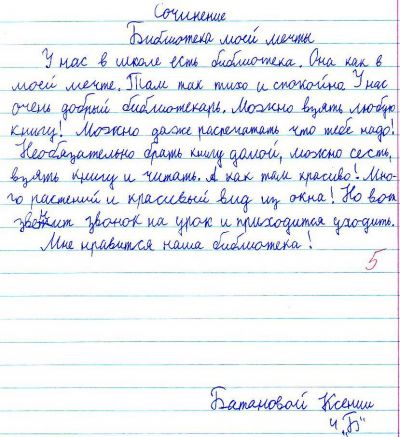 Сочинение
Библиотека моей мечты
У нас в школе есть библиотека. Она как в
моей мечте. Там так тихо и спокойно. У нас
очень добрый библиотекарь. Можно взять любую
книгу! Можно даже распечатать что тебе надо!
Необязательно брать книгу домой, можно сесть,
взять книгу и читать. А как там красиво! Мно-
го растений и красивый вид из окна! Но вот
звенит звонок на урок и приходится уходить.
Мне нравится наша библиотека!
5
Батановой Ксении
4 „Б"